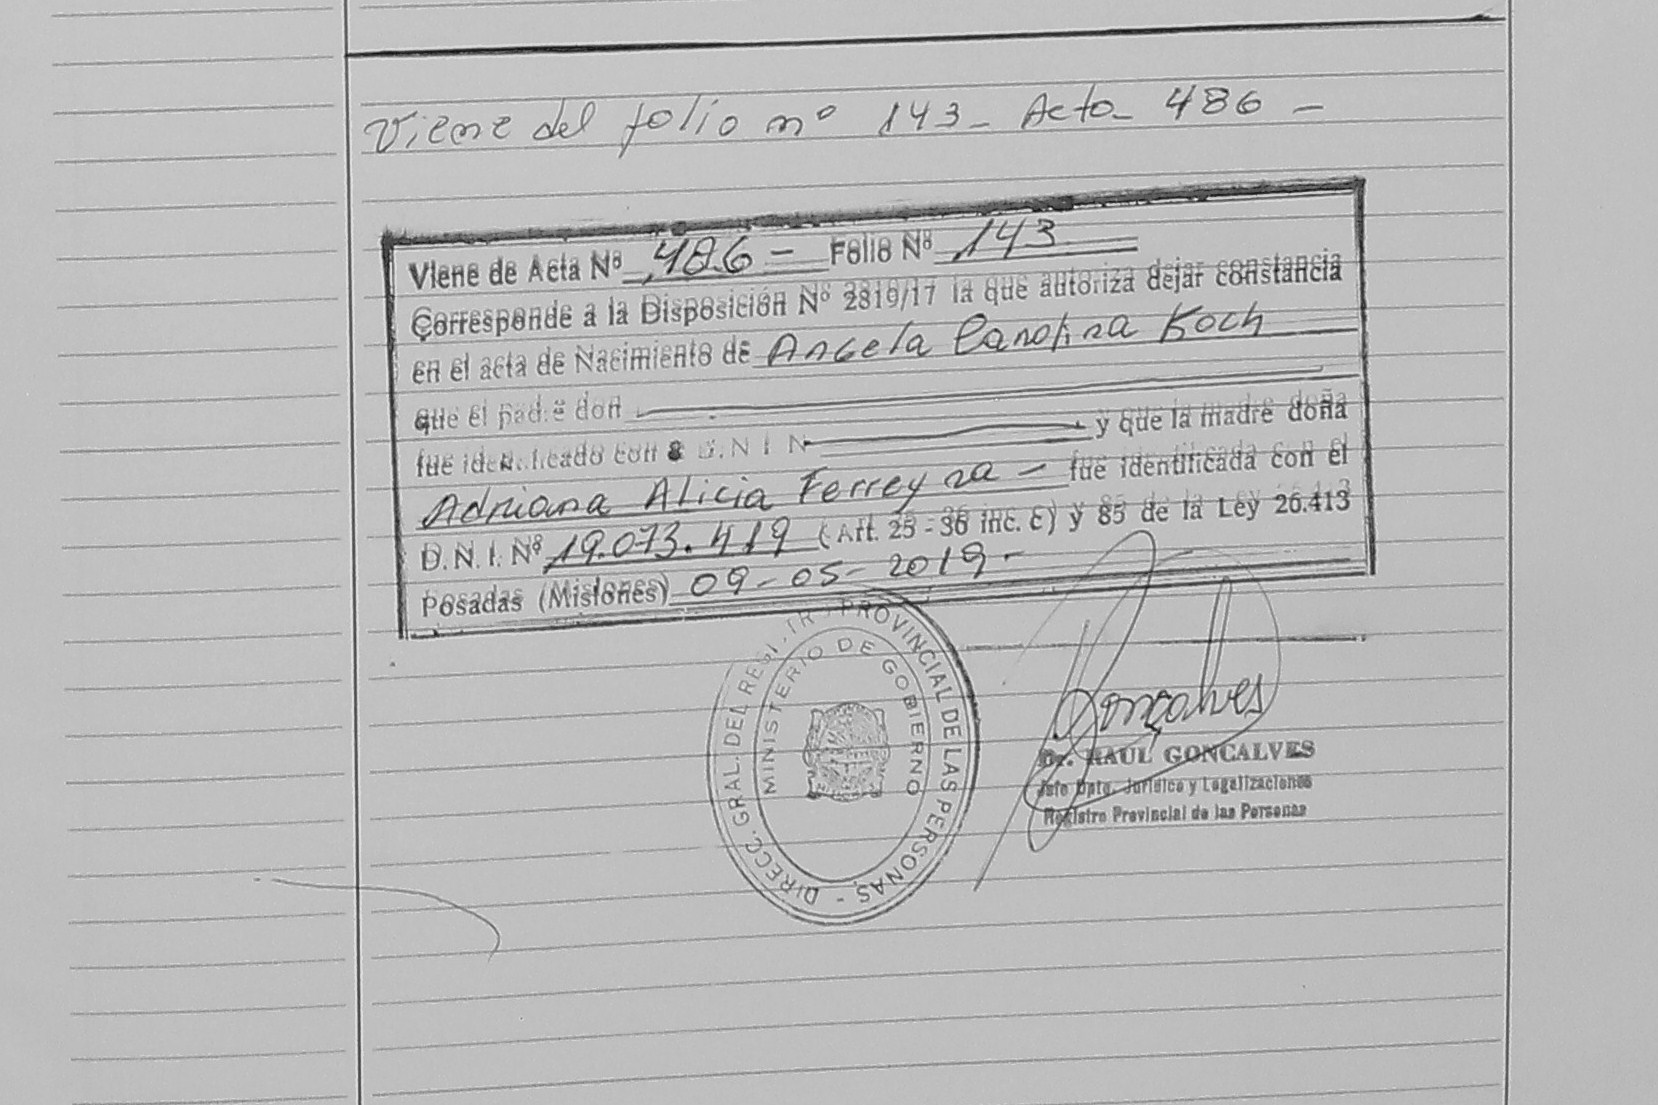 Viene del folio nº 143 - Acta - 486 -
Viene de Acta Nº 486 - Folio Nº 143
Corresponde a la Disposición Nº 2819/17 la que autoriza dejar constancia
en el acta de Nacimiento de Angela Carolina Koch
que el padre don
fue identificado con D.N.I N y que la madre doña
Adriana Alicia Ferreyra - fue identificada con el
D.N.I. Nº 19.073.419 (Art. 25 - 36 inc. c) y 85 de la Ley 26.413
Posadas (Misiones) 09-05-2019-
DIRECC. GRAL. DEL REGISTRO PROVINCIAL DE LAS PERSONAS -
MINISTERIO DE GOBIERNO
Gonçalves
Dr. RAUL GONCALVES
Jefe Dpto. Jurídico y Legalizaciones
Registro Provincial de las Personas